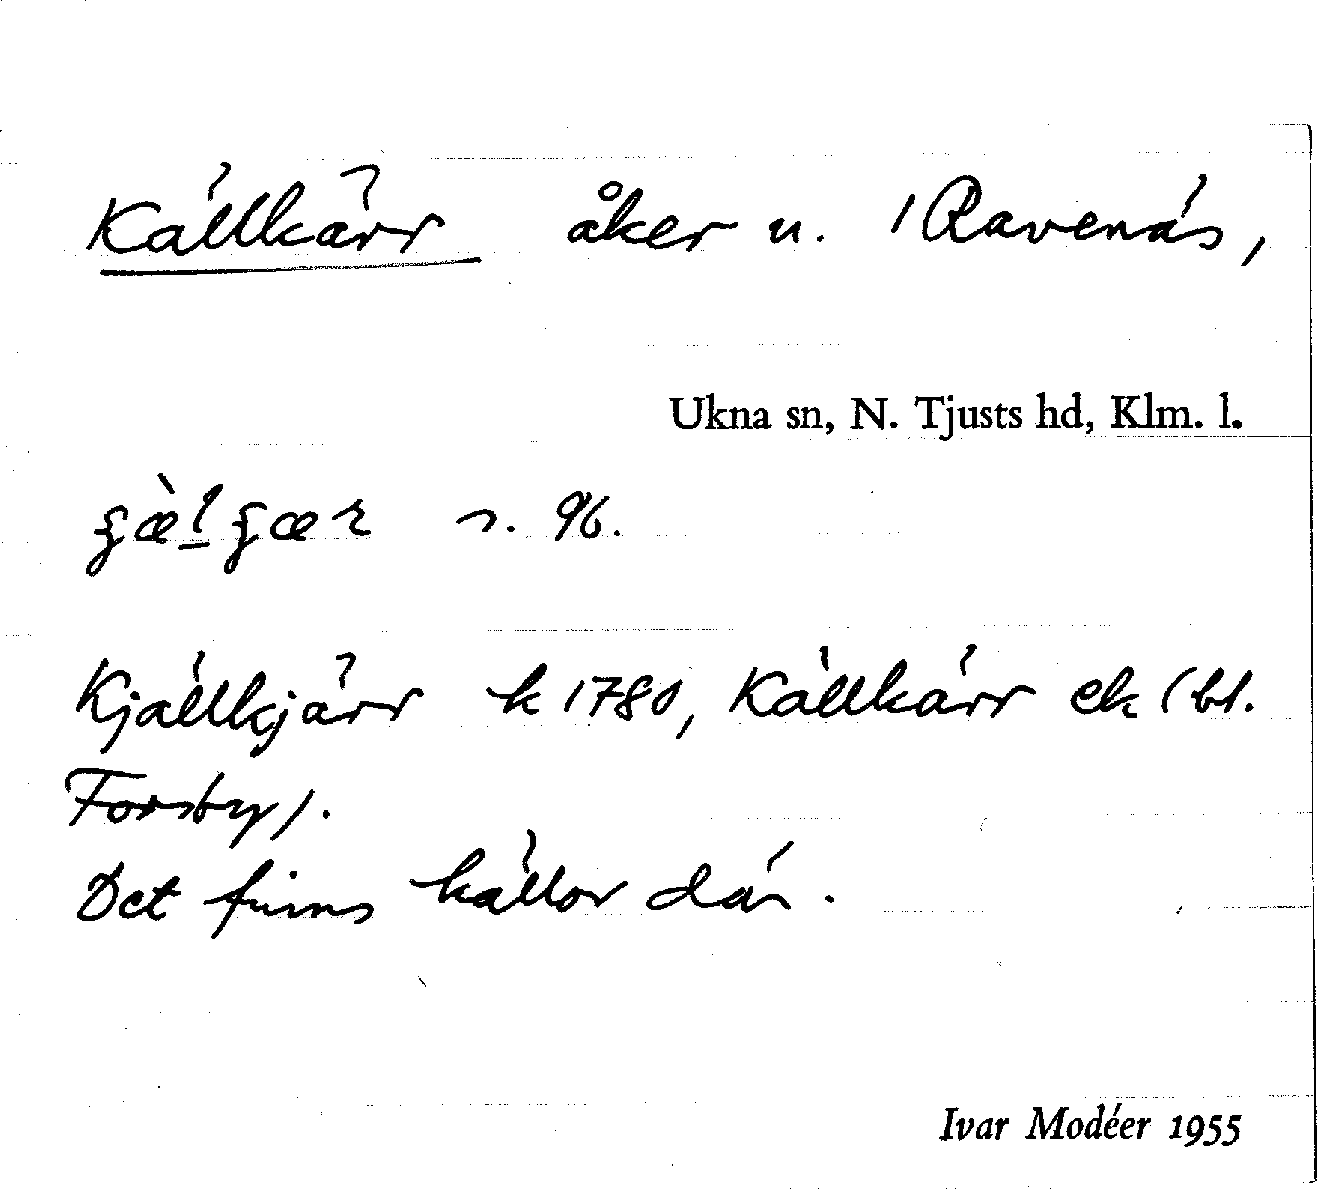 Källkärr åker u. 1 Ravenäs,
Ukna sn, N. Tjusts hd, Klm. l.
n. 96.
Kjällkjärr k 1780, Källkärr ek (bl.
Forsby).
Det finns källor där.
Ivar Modéer 1955